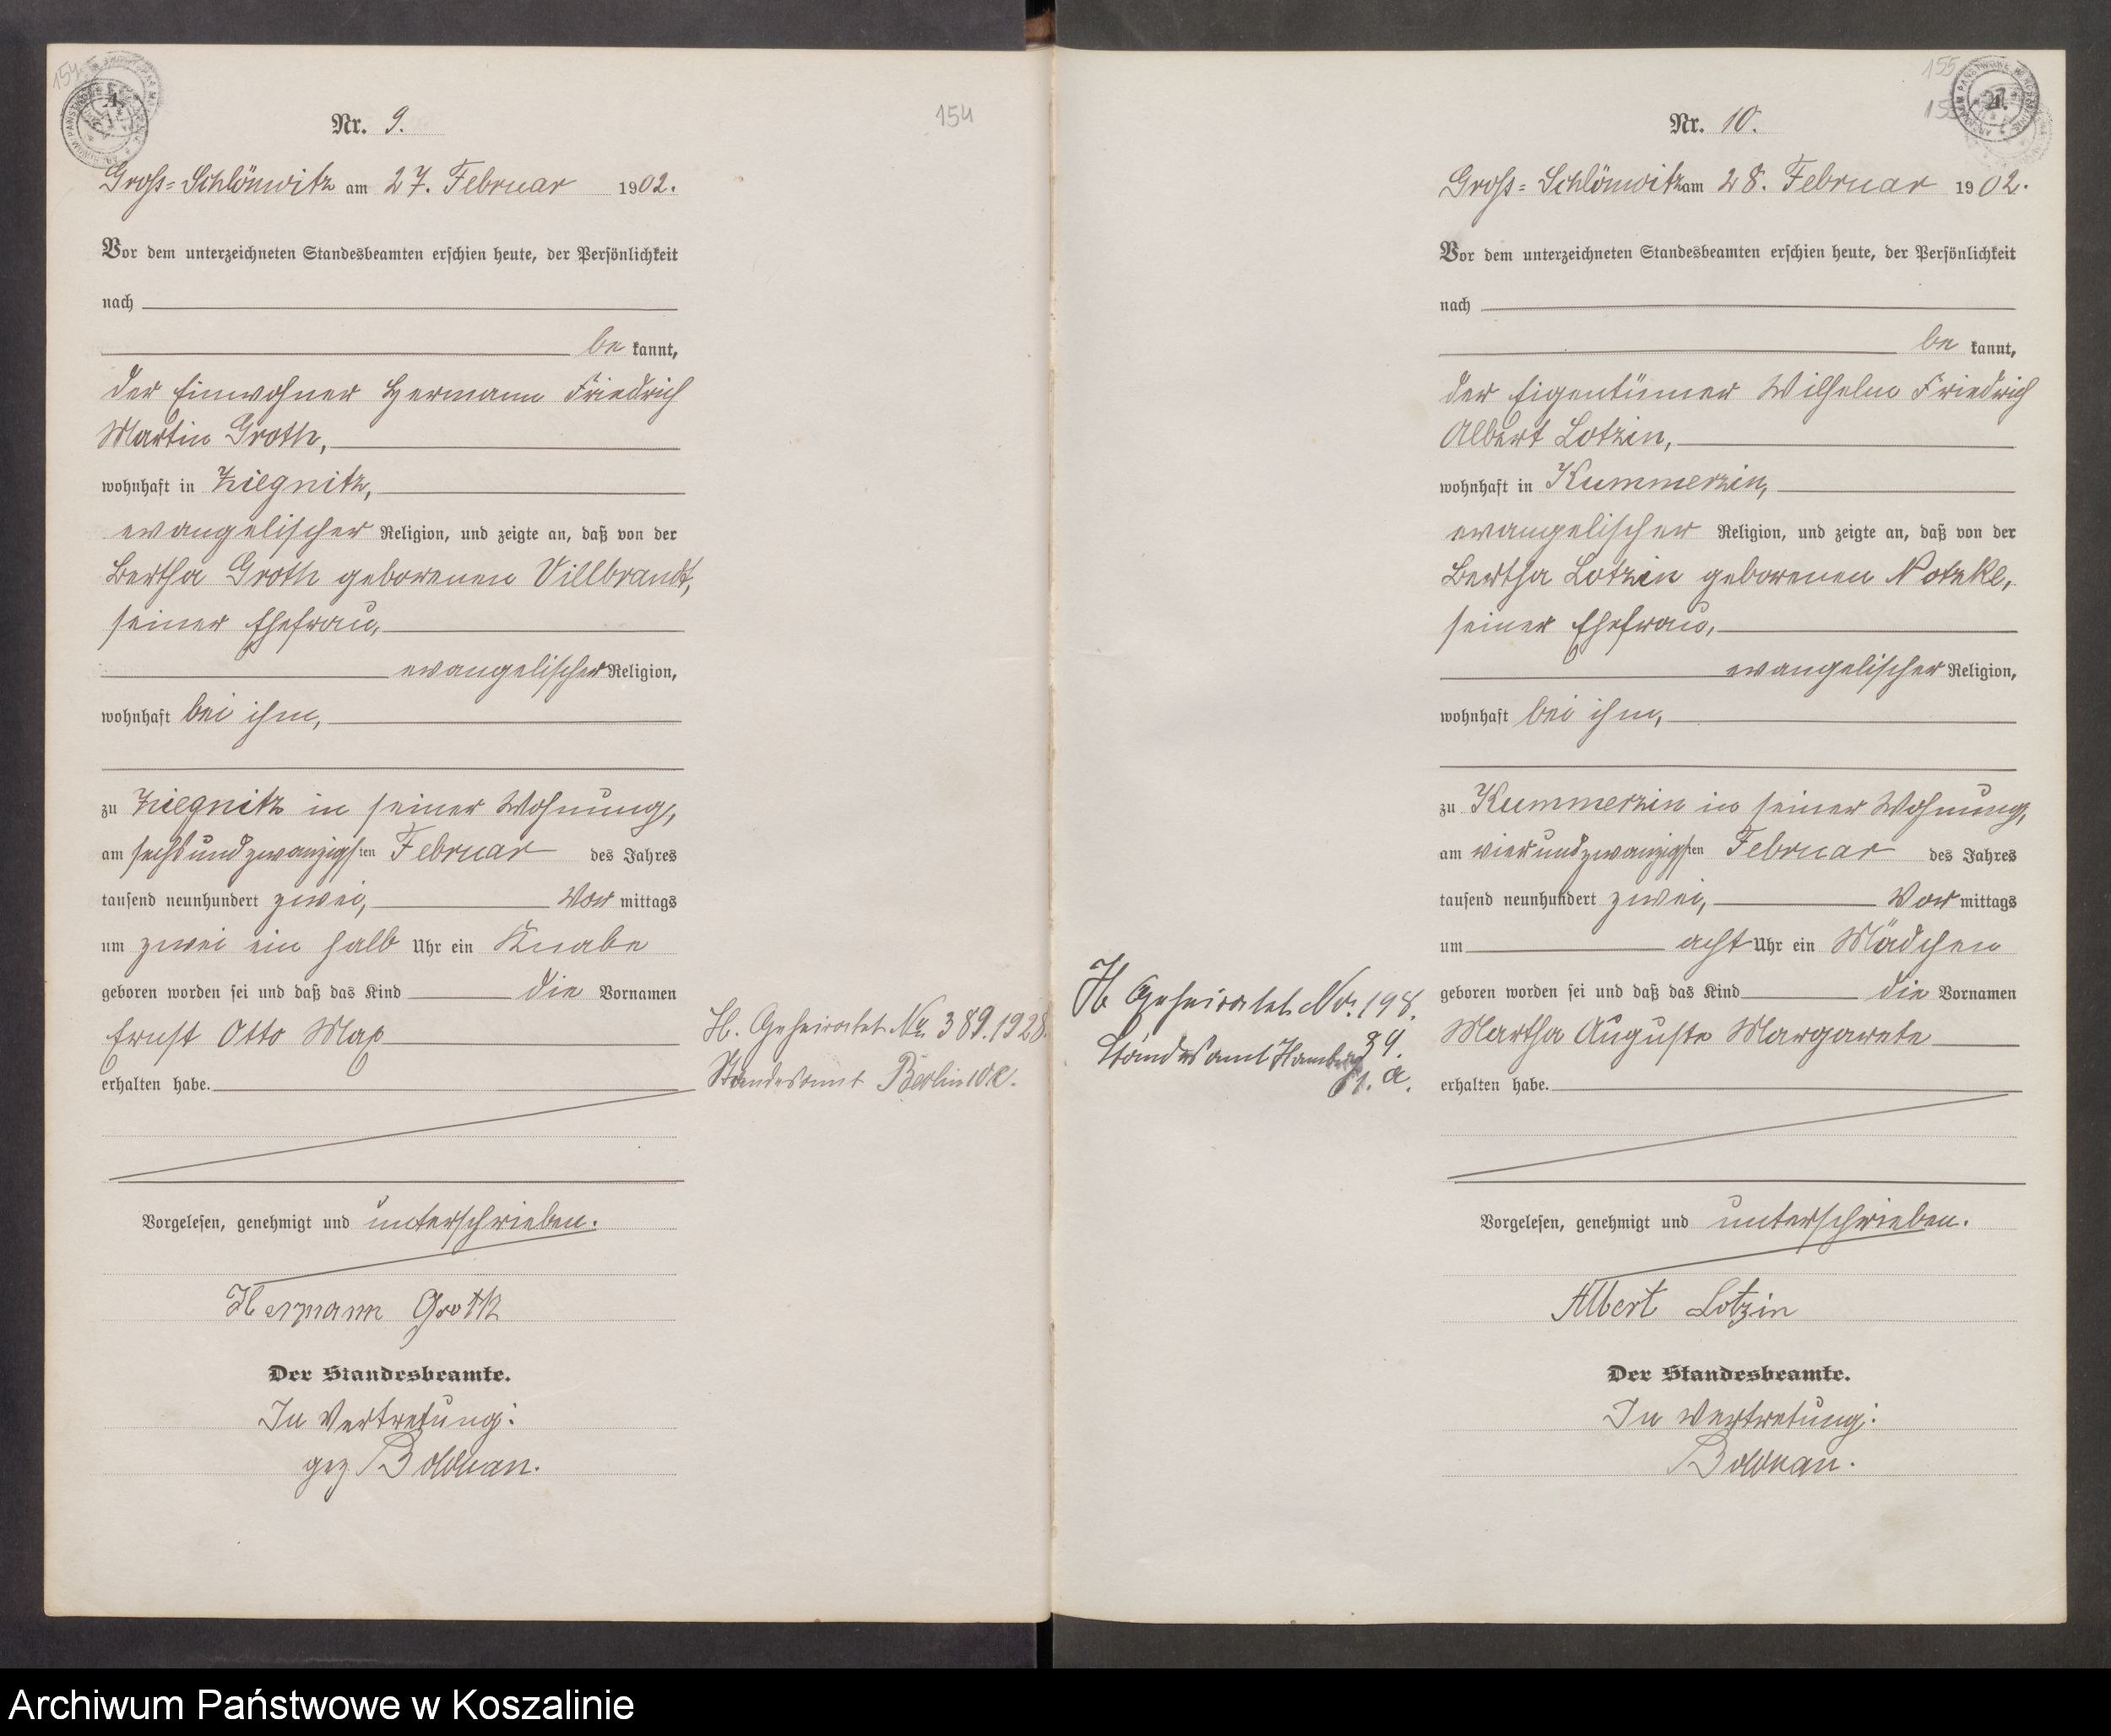 154
A.
Nr. 9.
154
Gross-Schlönwitz am 27. Februar 1902.
Vor dem unterzeichneten Standesbeamten erschien heute, der Persönlichkeit
nach
be kannt,
der Einwohner Hermann Friedrich
Martin Groth,
wohnhaft in Ziegnitz,
evangelischer Religion, und zeigte an, daß von der
Bertha Groth geborenen Villbrandt,
seiner Ehefrau,
evangelischer Religion,
wohnhaft bei ihm,
zu Ziegnitz in seiner Wohnung,
am sechsundzwanzigsten Februar des Jahres
tausend neunhundert zwei, Vor mittags
um zwei ein halb Uhr ein Knabe
geboren worden sei und daß das Kind die Vornamen
Ernst Otto Max
erhalten habe.
H. Geheiratet No. 389.1928.
Standesamt Berlin
Vorgelesen, genehmigt und unterschrieben.
Hermann Groth
Der Standesbeamte.
In Vertretung:
gez Bolduan.
155
Nr. 10.
Gross-Schlönwitz am 28. Februar 1902.
Vor dem unterzeichneten Standesbeamten erschien heute, der Persönlichkeit
nach
be kannt,
der Eigentümer Wilhelm Friedrich
Albert Lotzin,
wohnhaft in Kummerzin,
evangelischer Religion, und zeigte an, daß von der
Bertha Lotzin geborenen Notzke,
seiner Ehefrau,
evangelischer Religion,
wohnhaft bei ihm,
zu Kummerzin in seiner Wohnung,
am vierundzwanzigsten Februar des Jahres
tausend neunhundert zwei, Vor mittags
um acht Uhr ein Mädchen
geboren worden sei und daß das Kind die Vornamen
Martha Auguste Margarete
erhalten habe.
H Geheiratet No. 198.
Standesamt Hamburg
Vorgelesen, genehmigt und unterschrieben.
Albert Lotzin
Der Standesbeamte.
In Vertretung:
Bolduan.
Archiwum Państwowe w Koszalinie